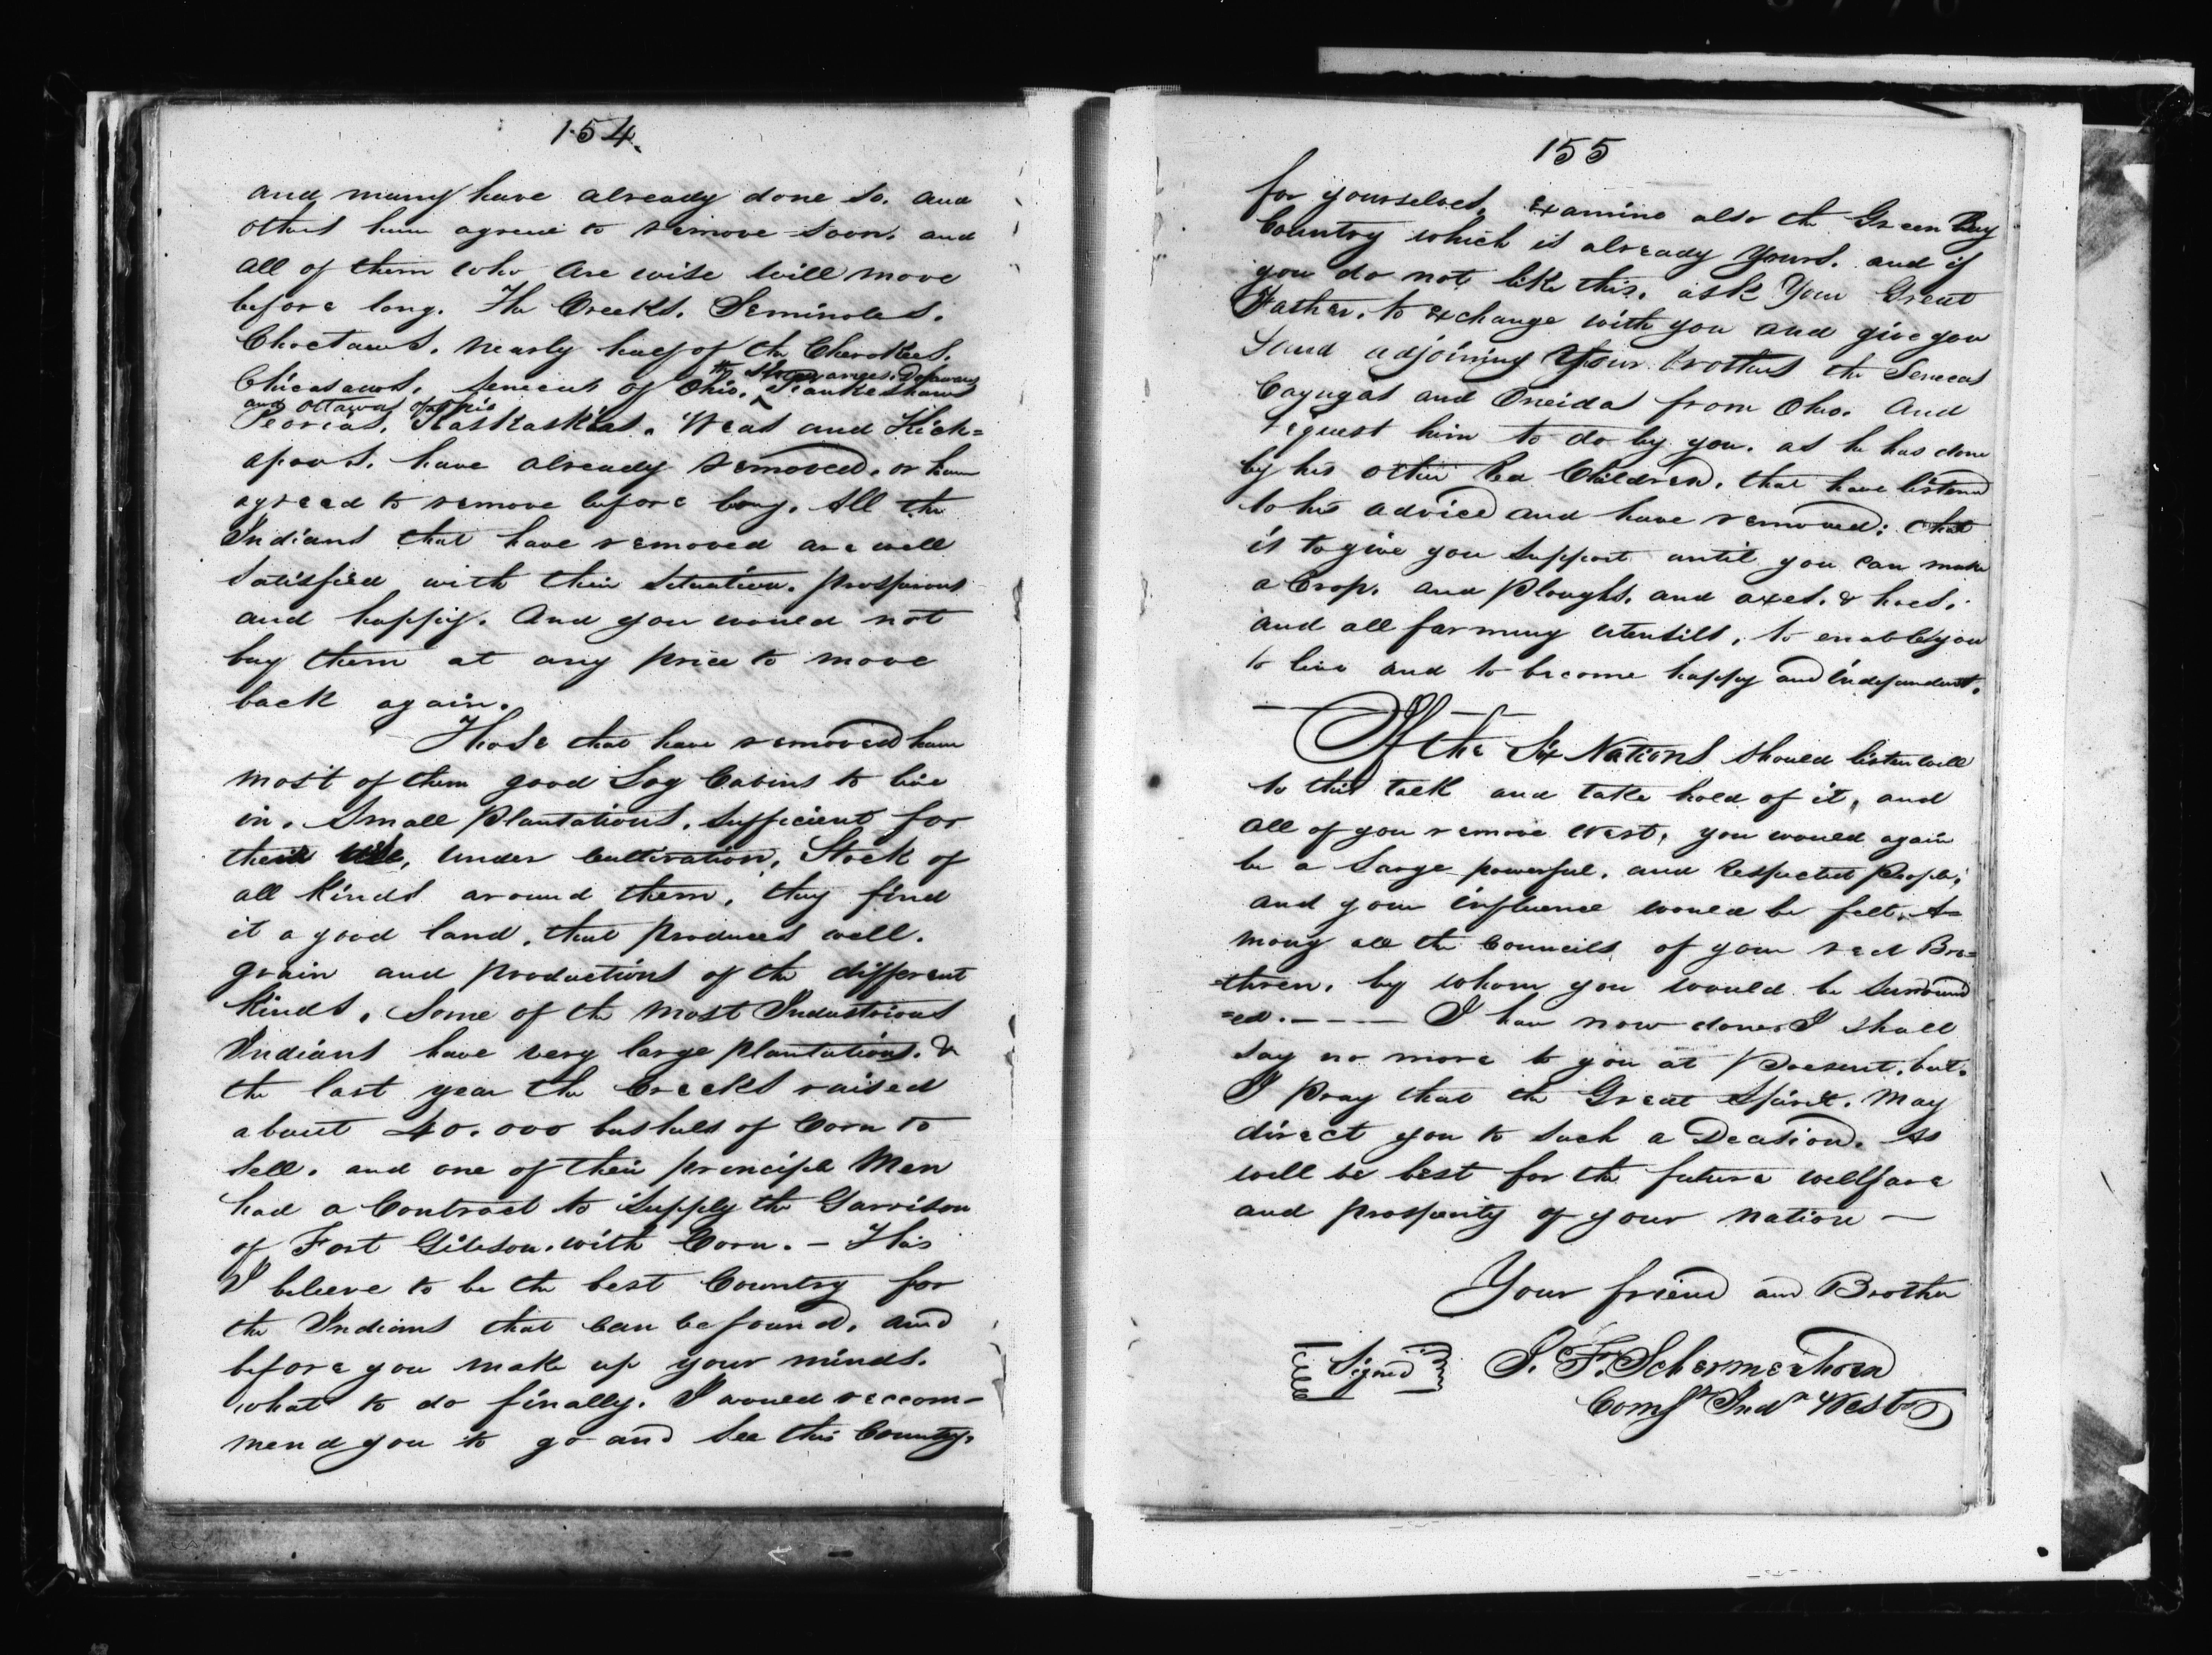 154.
and many have already done so. and
others have agreed to remove soon. and
all of them who are wise will move
before long. The Creeks. Seminoles.
Choctaws. nearly half of the Cherokees.
the Delawares
Chicasaws. Senecas of Ohio. Piankeshaws
and Ottawas of Ohio
Peorias. Kaskaskias. Weas and Kick=
apoos. have already removed. or have
agreed to remove before long. All the
Indians that have removed are well
satisfied with their situation. prosperous
and happy. And you would not
buy them at any price to move
back again.
Those that have removed have
most of them good Log Cabins to live
in. Small Plantations. sufficient for
their use, under cultivation, Stock of
all kinds around them, they find
it a good land, that produces well.
grain and productions of the different
kinds. Some of the most Industrious
Indians have very large plantations. &
the last year the Creeks raised
about 40.000 bushels of Corn to
sell. and one of their principle Men
had a Contract to supply the Garrison
of Fort Gibson. with Corn. — This
I beleeve to be the best Country for
the Indians that can be found. and
before you make up your minds.
what to do finally. I would reccom-
mend you to go and see this Country.
155
for yourselves. Examine also the Green Bay
Country which is already yours. and if
you do not like this. ask Your Great
Father. to exchange with you and give you
Land adjoining Your brothers the Senecas
Cayugas and Oneidas from Ohio. And
request him to do by you. as he has done
by his other Red Children. that have listened
to his advice and have removed: that
is to give you support until you can make
a Crop. and Ploughs. and axes. & hoes.
and all farming utensils, to enable you
to live and to become happy and independent.
If the Six Nations should listen well
to this talk and take hold of it, and
all of you remove West, you would again
be a Large powerful. and respected People,
and your influence would be felt. A=
mong all the Councils of your red Bre=
=thren. by whom you would be surround
=ed. — — — I have now done. I shall
say no more to you at Present. but.
I Pray that the Great Spirit. May
direct you to such a Decision. As
will be best for the future wellfare
and prosperity of your nation —
Your friend and Brother
Signed J. F. Schermerhorn
Comr Indn West